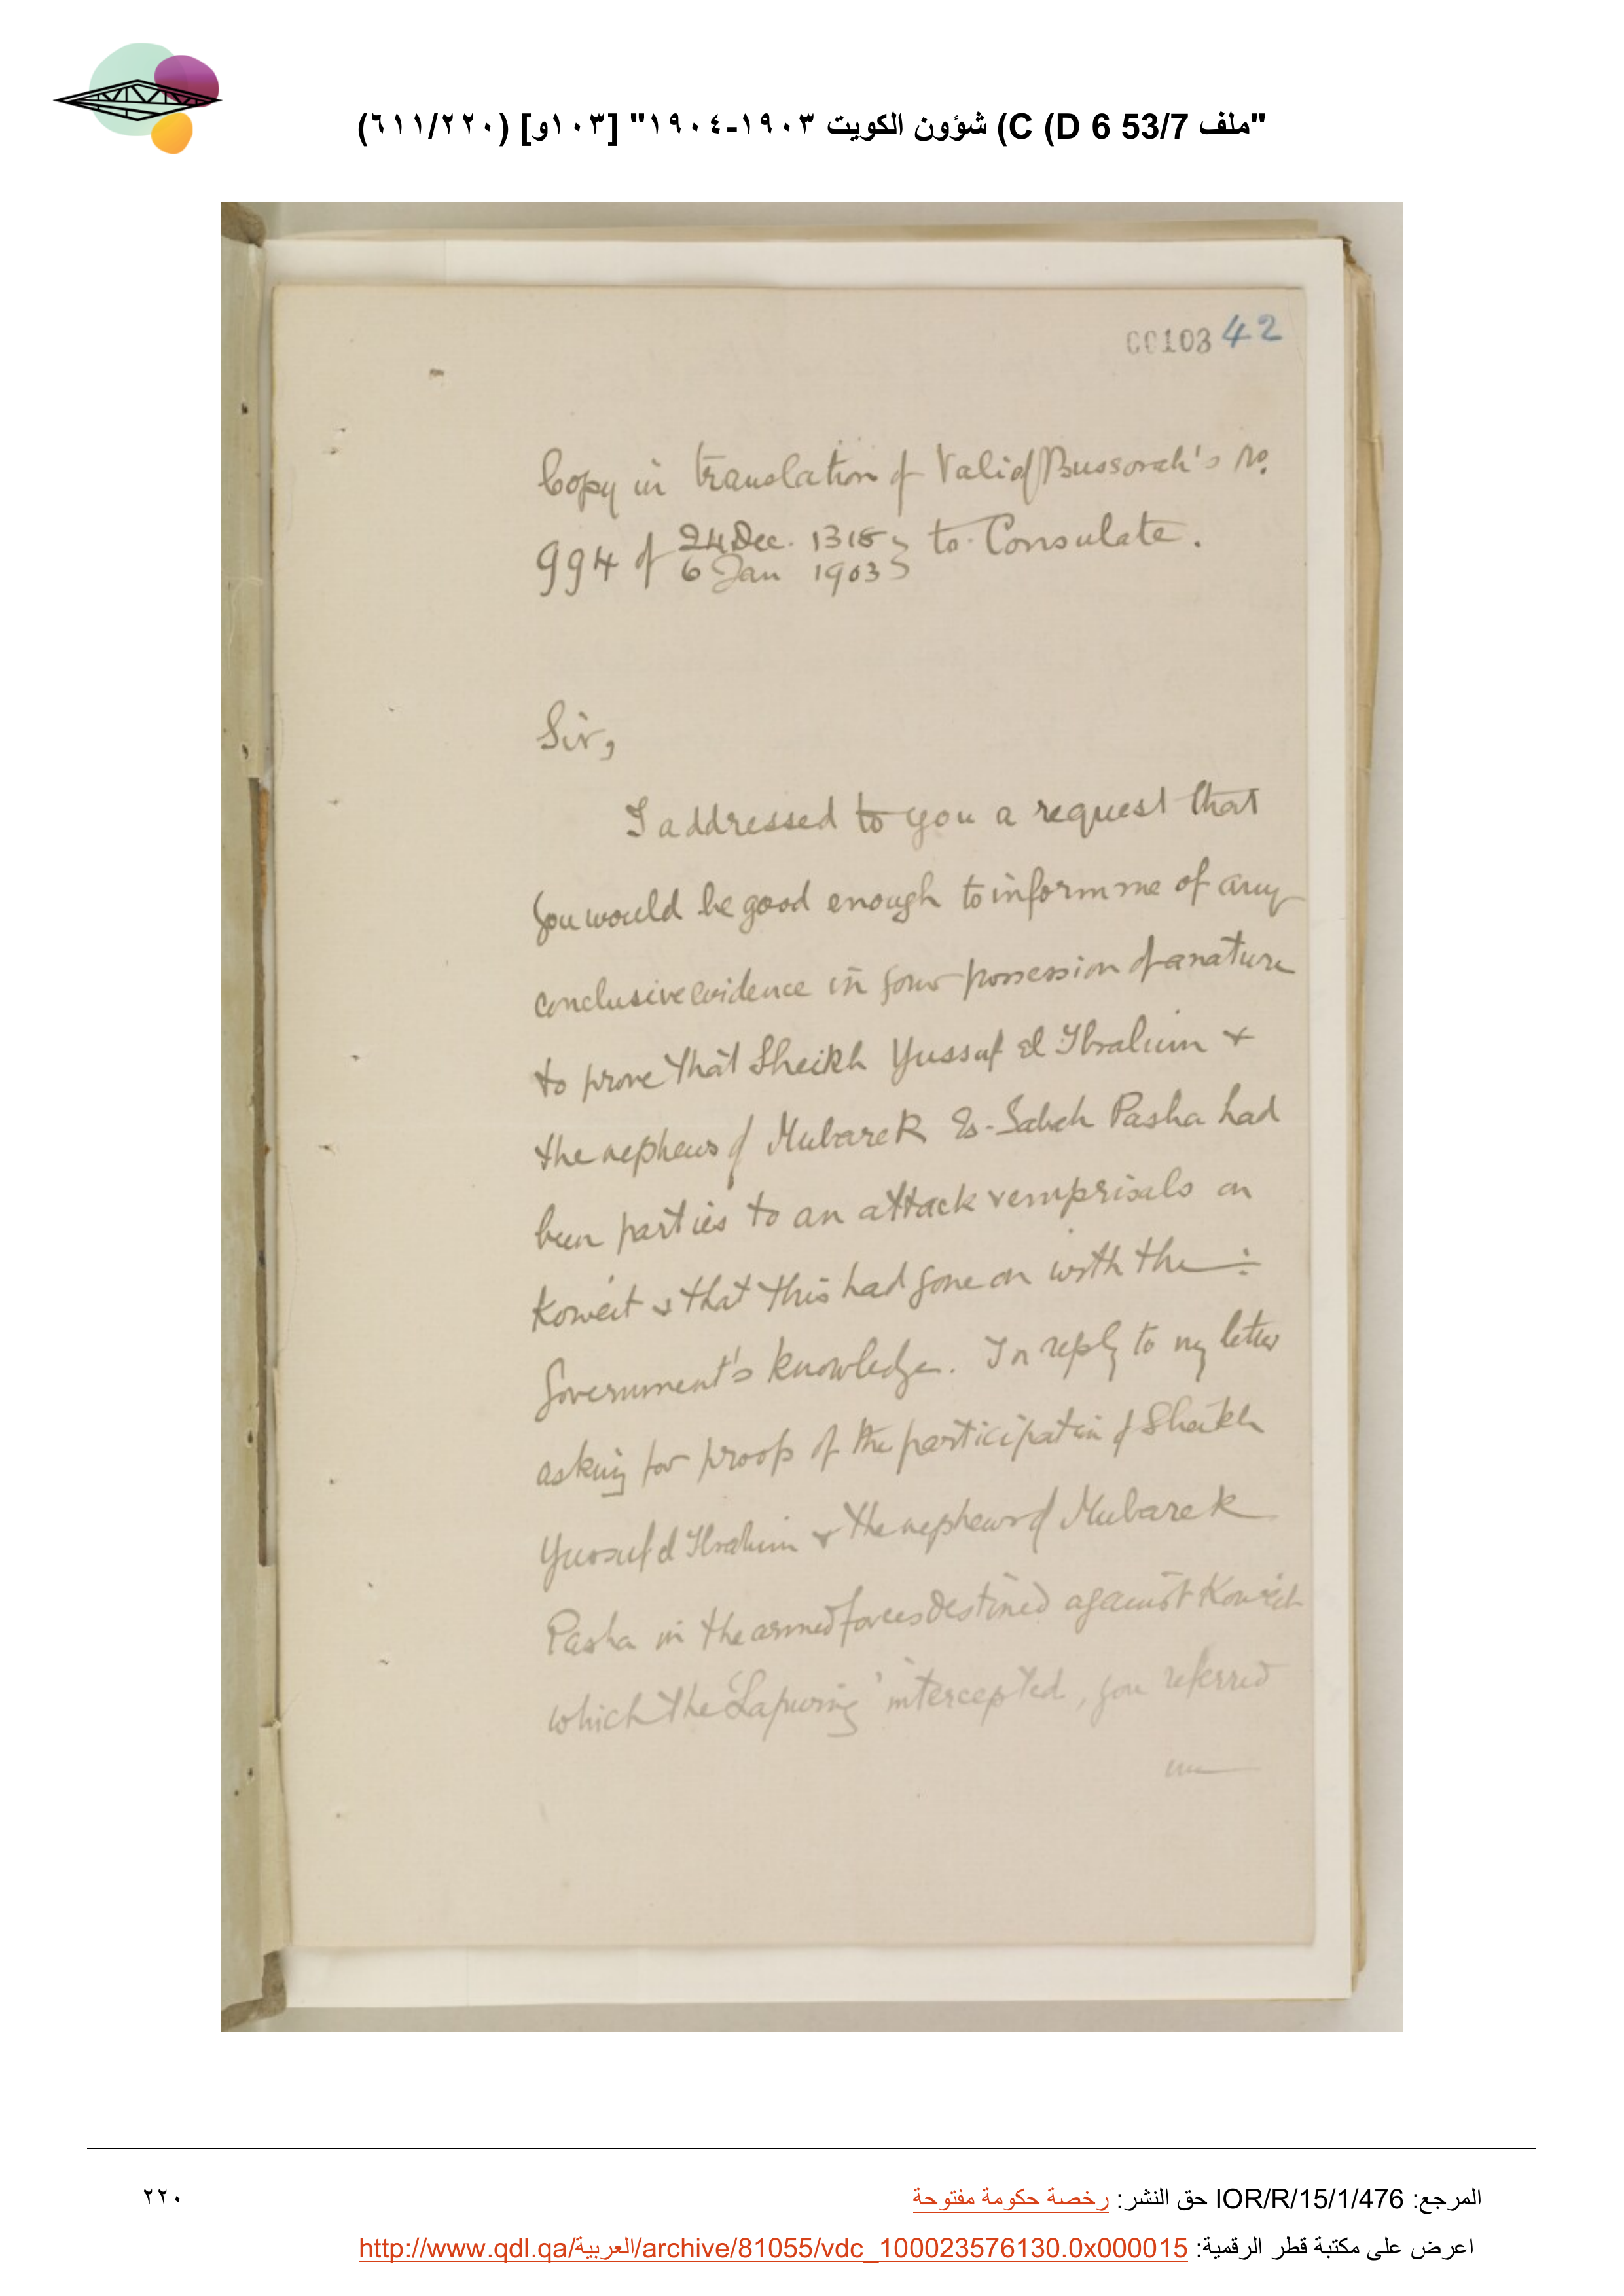 "ملف 53/7 C (D 6) شؤون الكويت ١٩٠٣-١٩٠٤" [١٠٣و] (٦١١/٢٢٠)
00103 42
Copy in translation of Vali of Bussorah's No.
994 of 24 Dec. 1318 to Consulate.
6 Jan 1903
Sir,
I addressed to you a request that
you would be good enough to inform me of any
conclusive evidence in your possession of a nature
to prove that Sheikh Yussuf el Ibrahim &
the nephews of Mubarek Es-Sabah Pasha had
been parties to an attack & emprisals on
Koweit & that this had gone on with the
Government's knowledge. In reply to my letter
asking for proofs of the participation of Sheikh
Yussuf el Ibrahim & the nephews of Mubarek
Pasha in the armed forces destined against Koweit
which the 'Lapwing' intercepted, you referred
me
المرجع: IOR/R/15/1/476 حق النشر: رخصة حكومة مفتوحة
٢٢٠
اعرض على مكتبة قطر الرقمية: http://www.qdl.qa/العربية/archive/81055/vdc_100023576130.0x000015